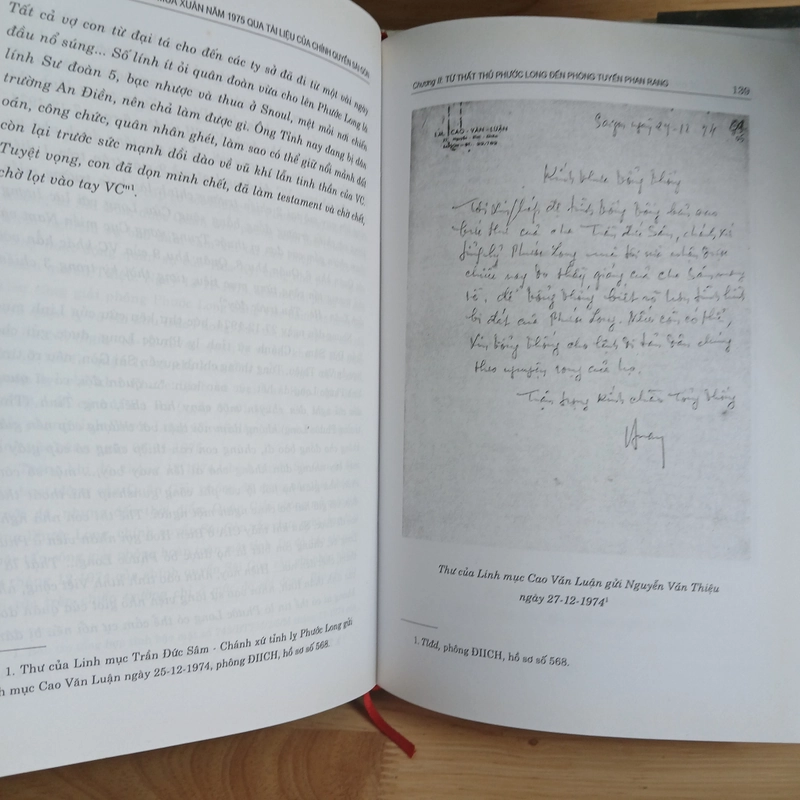 MÙA XUÂN NĂM 1975 QUA TÀI LIỆU CỦA CHÍNH QUYỀN SÀI GÒN
Tất cả vợ con từ đại tá cho đến các ty sở đã đi từ một vài ngày
đầu nổ súng... Số lính ít ỏi quân đoàn vừa cho lên Phước Long là
lính Sư đoàn 5, bạc nhược và thua ở Snoul, mệt mỏi nơi chiến
trường An Điền, nên chả làm được gì. Ông Tỉnh nay đang bị dân
oán, công chức, quân nhân ghét, làm sao có thể giữ nổi mảnh đất
còn lại trước sức mạnh dồi dào về vũ khí lẫn tinh thần của VC.
Tuyệt vọng, con đã dọn mình chết, đã làm testament và chờ chết,
chờ lọt vào tay VC"¹.
1. Thư của Linh mục Trần Đức Sâm - Chánh xứ tỉnh lỵ Phước Long gửi
h mục Cao Văn Luận ngày 25-12-1974, phông ĐIICH, hồ sơ số 568.
Chương II: TỪ THẤT THỦ PHƯỚC LONG ĐẾN PHÒNG TUYẾN PHAN RANG
139
L.M. CAO-VĂN-LUẬN
Saigon ngày 27-12-74
Kính thưa Tổng Thống
Tôi xin phép đệ trình Tổng Thống bản sao
bức thư của cha Trần Đức Sâm, chánh xứ
tỉnh lỵ Phước Long mà tôi vừa nhận được
chiều nay do thầy giảng của cha Sâm mang
về, để Tổng Thống biết rõ hơn tình hình
bi đát của Phước Long. Nếu còn có thể,
xin Tổng Thống cho lệnh di tản dân chúng
theo nguyện vọng của họ.
Trân trọng kính chào Tổng Thống
Thư của Linh mục Cao Văn Luận gửi Nguyễn Văn Thiệu
ngày 27-12-1974¹
1. Tlđd, phông ĐIICH, hồ sơ số 568.